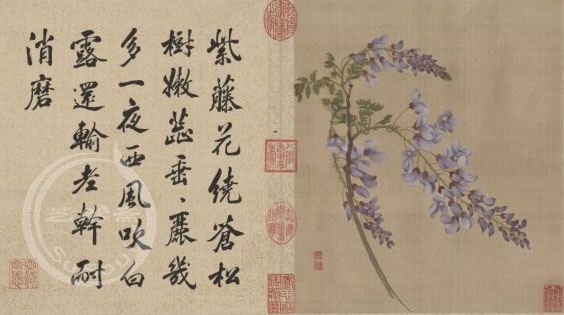 紫藤花繞蒼松
樹嫩蕊垂〻麗幾
多一夜西風吹白
露還輸老幹耐
消磨